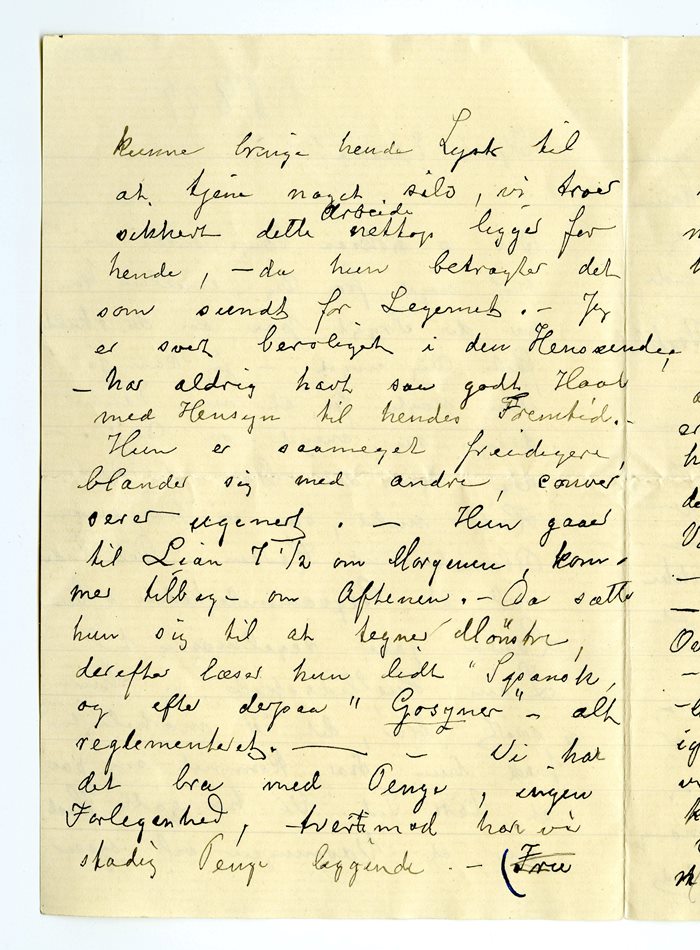 kunne bringe hende Lyst til
at tjene noget selv, vi troer
arbeide
sikkert dette nettop ligger for
hende, – da hun betragter det
som sundt for Legemet. – Jeg
er svert beroliget i den Henseende,
– har aldrig havt saa godt Haab
med Hensyn til hendes Fremtid. –
Hun er saameget freidigere,
blander sig med andre, conver
serer ugenert. – Hun gaaer
til Lian 7 1/2 om Morgenen, kom-
mer tilbage om Aftenen. – Da sætter
hun sig til at tegne Mönstre,
derefter læser hun lidt "Spansk,
og efter derpaa "Gosyner" – alt
reglementeret. — – Vi har
det bra med Penge, ingen
Forlegenhed, tvertimod har vi
stadig Penge liggende. – (Fru